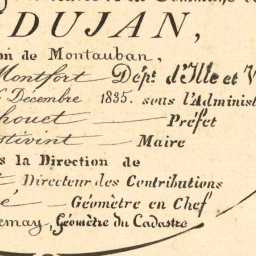 DUJAN,
on de Montauban,
Montfort Dép.t d'Ille et V
Décembre 1835. sous l'Administ
houet — Préfet
stivint — Maire
s la Direction de
Directeur des Contributions
é — Géomètre en Chef
emay, Géomètre du Cadastre